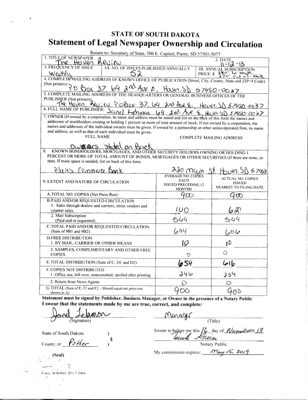 STATE OF SOUTH DAKOTA
Statement of Legal Newspaper Ownership and Circulation
Return to: Secretary of State, 500 E. Capitol, Pierre, SD 57501-5077
1. TITLE OF NEWSPAPER
The Hoven Review
2. DATE
11-12-13
3. FREQUENCY OF ISSUE
Weekly
3A. NO. OF ISSUES PUBLISHED ANNUALLY
52
3B. ANNUAL SUBSCRIPTION
PRICE $
4. COMPLETE MAILING ADDRESS OF KNOWN OFFICE OF PUBLICATION (Street, City, County, State and ZIP+4 Code)
(Not printers)
PO Box 37, 64 2nd Ave E, Hoven SD 57450-0037
5. COMPLETE MAILING ADDRESS OF THE HEADQUARTERS OR GENERAL BUSINESS OFFICES OF THE
PUBLISHER (Not printers)
The Hoven Review PO Box 37, 64 2nd Ave E, Hoven SD 57450-0037
6. FULL NAME, COMPLETE MAILING ADDRESS OF
PUBLISHER
7. OWNER (If owned by a corporation, its name and address must be stated and
addresses of stockholders owning or holding 1 percent or more of total amount of stock. If not owned by a corporation, the
names and addresses of the individual owners must be given. If owned by a partnership or other unincorporated firm, its name
and address, as well as that of each individual must be given.
FULL NAME COMPLETE MAILING ADDRESS
owners listed on back
8. KNOWN BONDHOLDERS, MORTGAGEES, AND OTHER SECURITY HOLDERS OWNING OR HOLDING 1
PERCENT OR MORE OF TOTAL AMOUNT OF BONDS, MORTGAGES OR OTHER SECURITIES (If there are none, so
state. If more space is needed, list on back of this form.
Plains Commerce Bank 220 Main St, Hoven, SD 57450
9. EXTENT AND NATURE OF CIRCULATION
AVERAGE NO. COPIES
EACH
ISSUED PRECEDING 12
MONTHS
ACTUAL NO. COPIES
ISSUED
NEAREST TO FILING DATE
A. TOTAL NO. COPIES (Net Press Run) 900 900
B. PAID AND/OR REQUESTED CIRCULATION
1. Sales through dealers and carriers, street vendors and
counter sales
2. Mail Subscription
(Paid and/or requested)
544 544
C. TOTAL PAID AND/OR REQUESTED CIRCULATION
(Sum of 9B1 and 9B2)
606
D. FREE DISTRIBUTION
1. BY MAIL, CARRIER OR OTHER MEANS
10 10
2. SAMPLES, COMPLIMENTARY AND OTHER FREE
COPIES
0 0
E. TOTAL DISTRIBUTION (Sum of C, D1 and D2) 654 616
F. COPIES NOT DISTRIBUTED
1. Office use, left over, unaccounted, spoiled after printing
246 284
2. Return from News Agents 0 0
G. TOTAL (Sum of E, F1 and F2 - Should equal net press run
shown in A)
900 900
Statement must be signed by Publisher, Business Manager, or Owner in the presence of a Notary Public
I swear that the statements made by me are true, correct, and complete:
(Signature)
Manager
(Title)
State of South Dakota )
County of Potter )
(Seal)
Sworn to before me this day of November 13
Notary Public
My commission expires: May 15, 2019